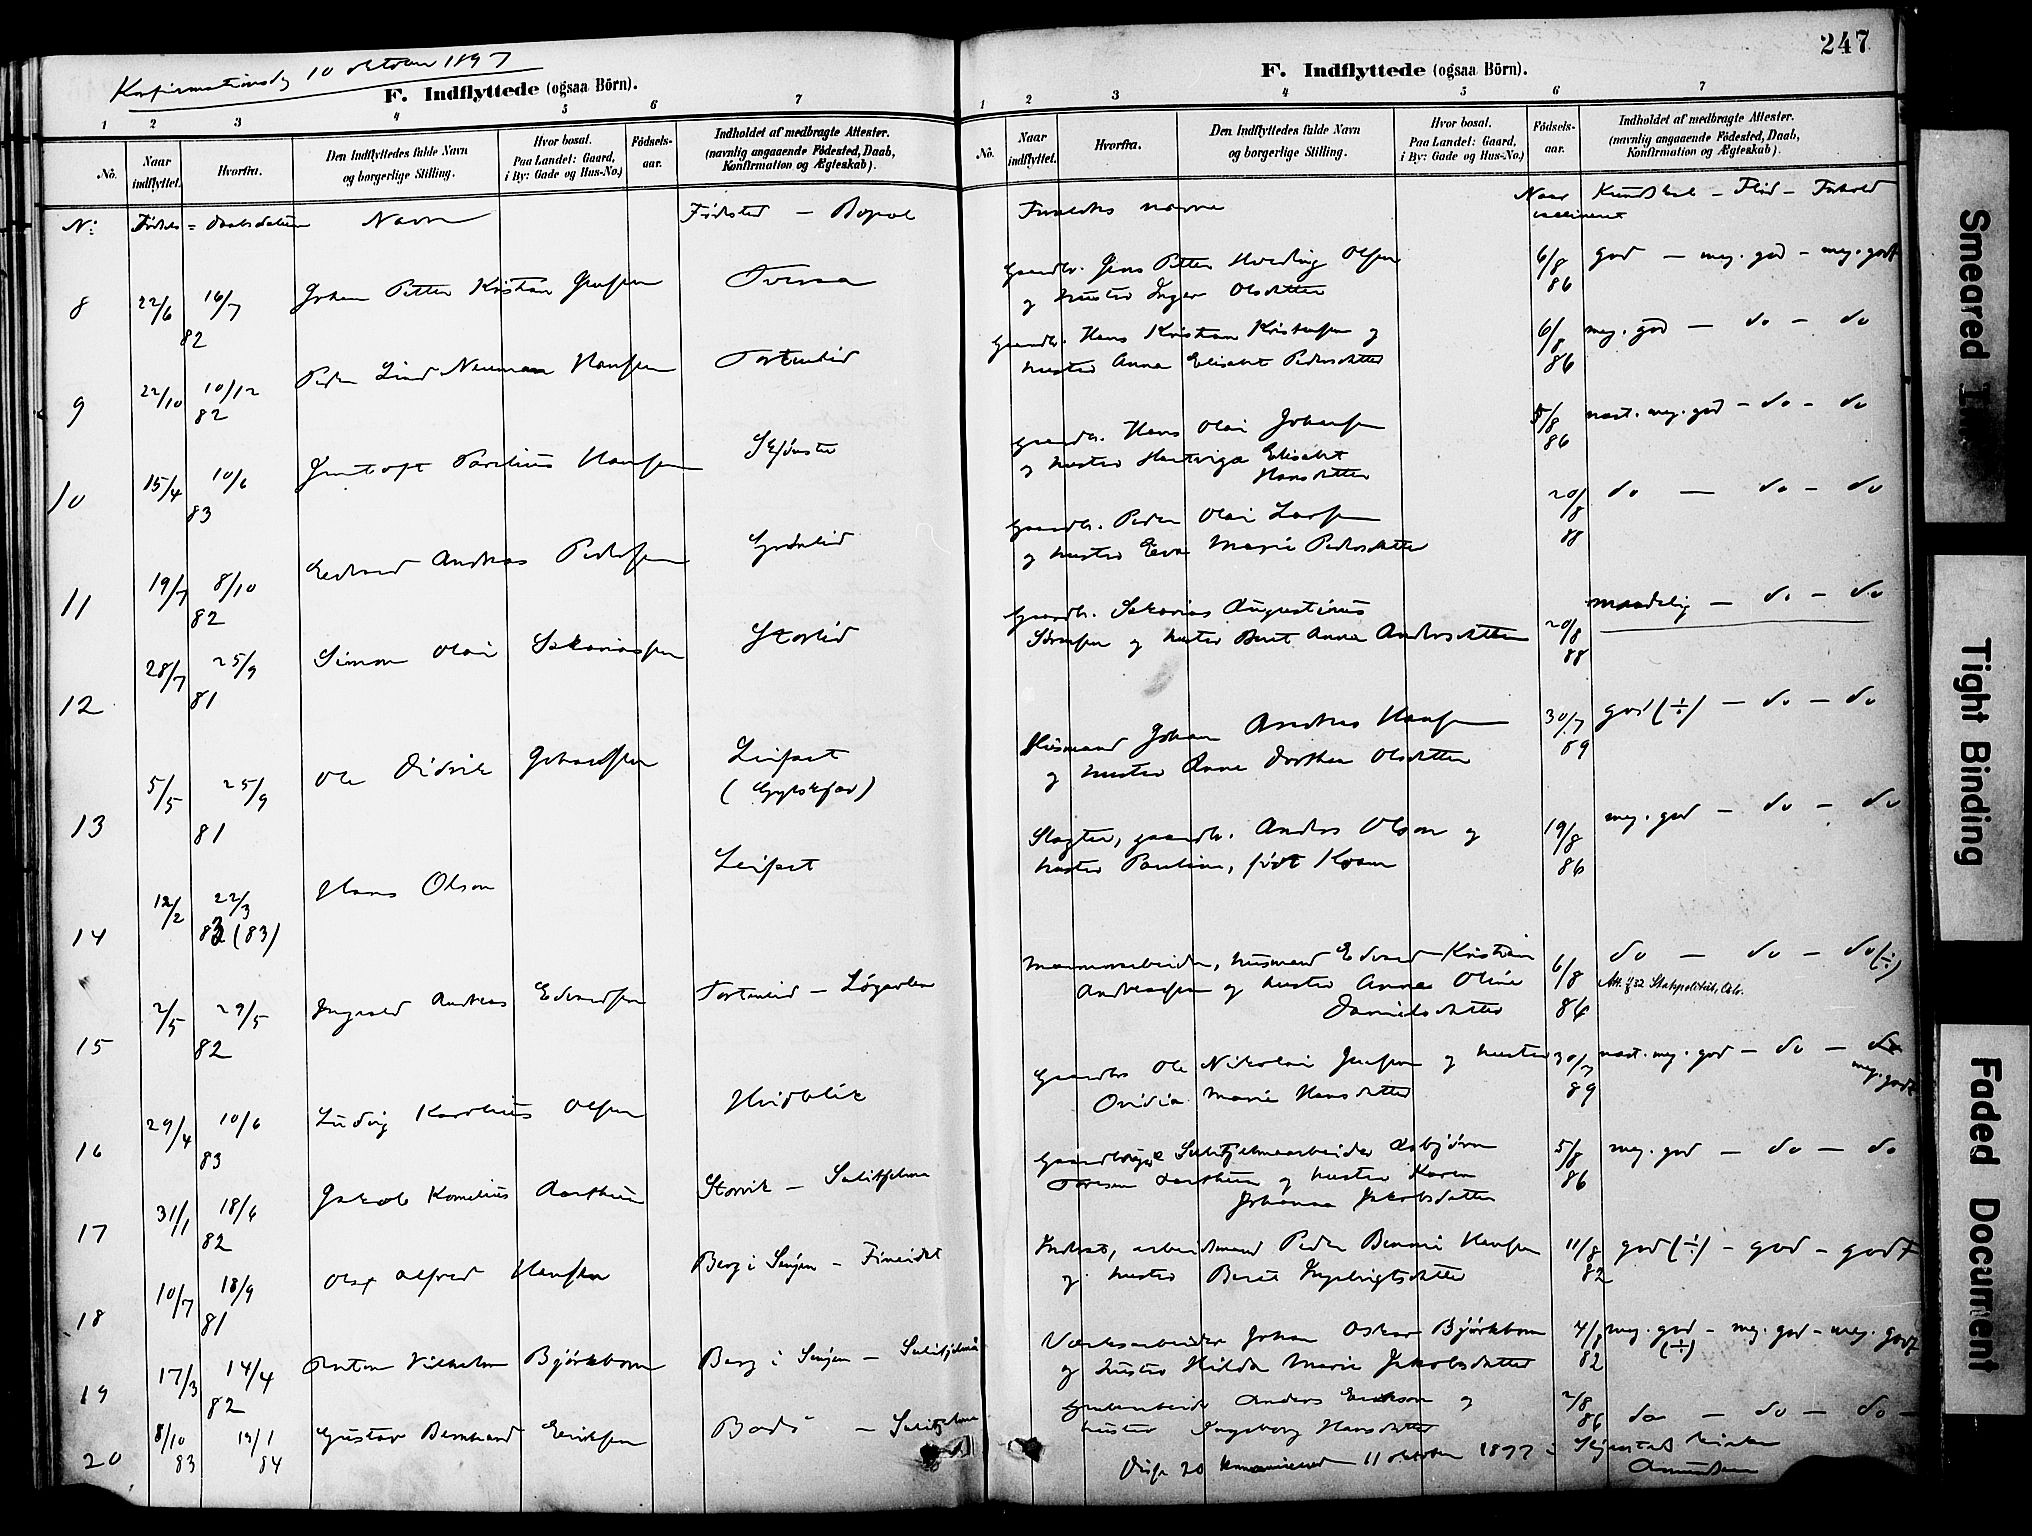 Konfirmationsdag 10 oktober 1897
F. Indflyttede (ogsaa Börn).
1 2 3 4 5 6 7
No. Naar indflyttet. Hvorfra. Den Indflyttedes fulde Navn og borgerlige Stilling. Hvor bosat. Paa Landet: Gaard, i By: Gade og Hus-No.) Födsels-aar. Indholdet af medbragte Attester. (navnlig angaaende Födested, Daab, Konfirmation og Ægteskab).
No: Födsels = Daabsdatum Navn Födested – Bopæl
8 22/6 16/7 82 Johan Petter Kristian Jensen Tveraa
9 22/10 10/12 82 Peder Lind Neuman Hansen Tortenlid
10 15/4 10/6 83 Hansen
11 19/7 8/10 82 Edvard Andreas Pedersen Grönlid
12 28/7 25/9 81 Simon Olai Sakariassen Storlid
13 5/5 25/9 81 Ole Didrik Johansen Leifset
14 12/2 22/3 83 (83) Hans Olson Leifset
15 2/5 29/5 82 Ingvald Andreas Edvardsen Tortenlid – Løgavlen
16 29/4 10/6 83 Ludvig Karolius Olsen Hvidblik
17 31/1 18/6 82 Jakob Kornelius Storvik – Sulitjelma
18 10/7 18/9 81 Olaf Alfred Hansen Berg i Senjen – Fineidet
19 17/3 14/4 82 Anton Vilhelm Björkbom Berg i Senjen – Sulitjelma
20 8/10 83 /1 84 Gustav Bernhard Eriksen Bodö – Sulitjelma
247
F. Indflyttede (ogsaa Börn).
1 2 3 4 5 6 7
No. Naar indflyttet. Hvorfra. Den Indflyttedes fulde Navn og borgerlige Stilling. Hvor bosat. Paa Landet: Gaard, i By: Gade og Hus-No.) Födsels-aar. Indholdet af medbragte Attester. (navnlig angaaende Födested, Daab, Konfirmation og Ægteskab).
Forældres navne Naar vaccineret Kundskab – Flid – Forhold
Gaardbr. Jens Petter Hveding Olsen 6/8 86 god – meg. god – meg. godt
og hustru Inger Olsdatter
Gaardbr. Hans Kristian Kristensen og 6/8 86 meg. god – do – do
hustru Anna Elisabet Pedersdatter
Gaardbr. Hans Olai Johansen 5/8 86 næst. meg. god – do – do
og hustru Hartviga Elisabet
Hansdatter
Gaardbr. Peder Olai Larsen 20/8 88 do – do – do
og hustru Eva Marie Pedersdatter
Gaardbr. Sakarias Augustinus 20/8 88 maadelig – do – do
Sörensen og hustru Berit Anna Andersdatter
Husmand Johan Andreas Hansen 30/7 89 god (÷) – do – do
og hustru Anne Dorthea Olsdatter
Slagter, gaardbr. Anders Olson og 19/8 86 meg. god – do – do
hustru Pauline, födt Kosmo
husmand Edvard Kristian 6/8 86 do – do – do (÷)
Andreassen og hustru Anna Oline Att. § 32 Statspolitiet, Oslo.
Danielsdatter
Gaardbr Ole Nikolai Jensen og hustru 30/7 89 næst. meg. god – do – do
Ovidia Marie Hansdatter meg. godt
Sulitjelmaarbeider Asbjörn 5/8 86 meg. god – do – do
og hustru Karen
Johanna Jakobsdatter
Inderst, arbeidsmand Peder Hansen 11/8 82 god (÷) – god – godt
og hustru Berit Ingebrigtsdatter
Værksarbeider Johan Oskar Björkbom 4/8 82 meg. god (÷) – meg. god – meg. godt
og hustru Hilda Marie Jakobsdatter
Grubearbeid Anders Erikson og 2/8 86 do – do – do –
hustru Ingeborg Hansdatter
Disse 20 11 oktober 1897 i kirke
Smeared Ink
Tight Binding
Faded Document